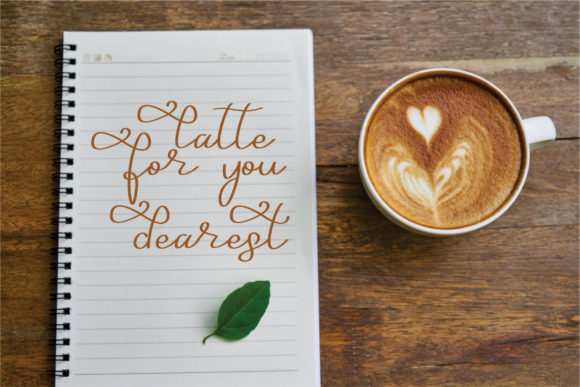 latte
for you
dearest